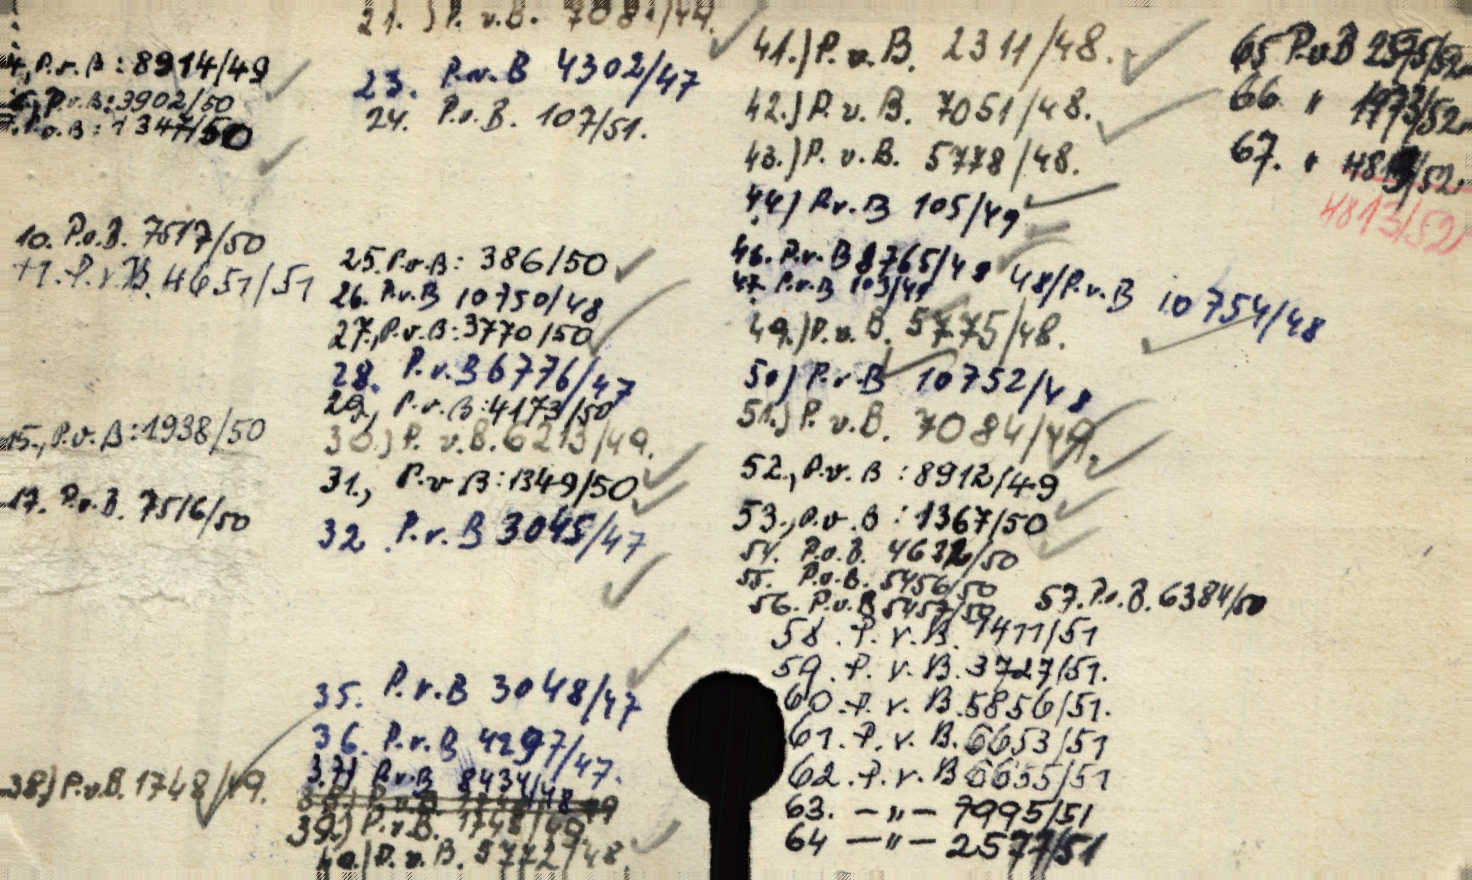 4., P.v.B: 8914/49
6., P.v.B: 3902/50
7. P.v.B: 1347/50
10. P.v.B. 7517/50
11. P.v.B. 4651/51
15., P.v.B: 1938/50
17. P.v.B. 7516/50
38.) P.v.B. 1748/49.
21. ) P. v.B. 7081/49.
23. P.v.B 4302/47
24. P.v.B. 107/51.
25. P.v.B: 386/50
26. P.v.B 10750/48
27., P.v.B: 3770/50
28. P.v.B 6776/47
29., P.v.B: 4173/50
30.) P. v.B. 6213/49.
31., P.v B: 1349/50
32. P.v.B 3045/47
35. P.v.B 3048/47
36. P.v.B 4297/47.
37) P.v.B 8434/48
39.) P.v.B. 1748/49.
40.) P. v. B. 5772/48.
41.) P. v. B. 2311/48.
42.) P. v. B. 7051/48.
43.) P. v.B. 5778/48.
44) P.v.B 105/49
46. P.v.B 8765/48
47. P.v.B 103/49
48/P.v.B 10754/48
49.) P.v. B. 5775/48.
50) P.v.B 10752/48
51.) P. v.B. 7084/49.
52., P.v.B: 8912/49
53., P.v.B: 1367/50
54. P.v.B. 4632/50
55. P.v.B. 5456/50
56. P.v.B 5457/50
57. P.v.B. 6384/50
58. P. v. B. 1411/51
59. P. v. B. 3727/51.
60. P. v. B. 5856/51.
61. P. v. B. 6653/51
62. P. v. B 6655/51
63. — „ — 7995/51
64 — „ — 2577/51
65 P.v.B 2595/52
66 " 1973/52
67. " 4813/52
4813/52